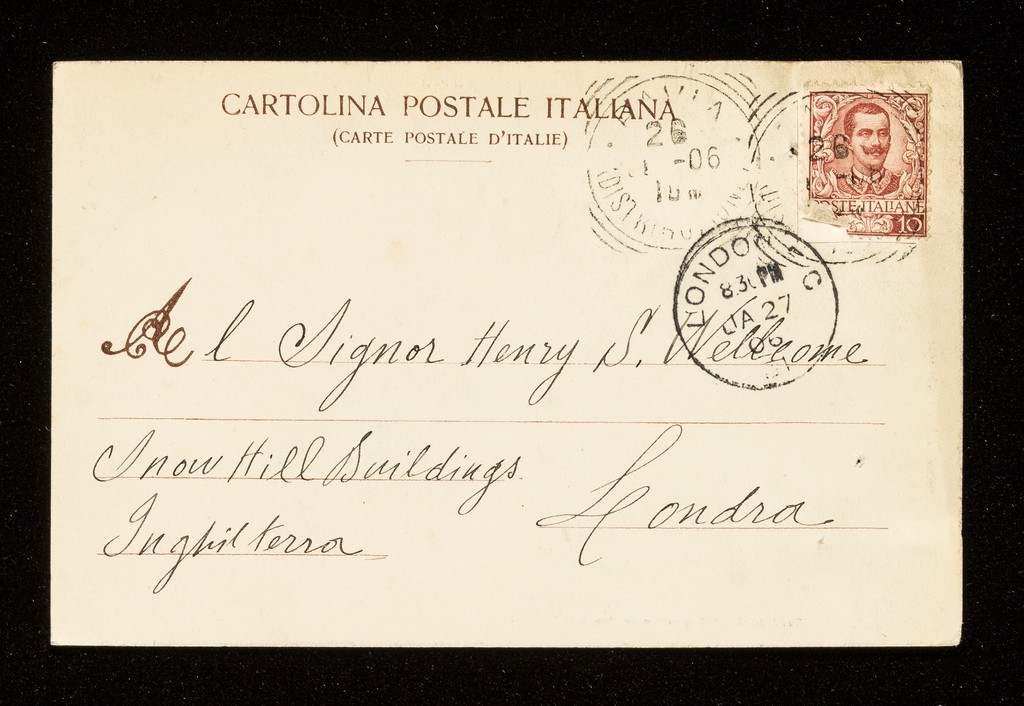 CARTOLINA POSTALE ITALIANA
(CARTE POSTALE D'ITALIE)
PAVIA
26
1 -06
10
26
POSTE ITALIANE
10
LONDON E C
8.30 PM
JA 27
06
Al Signor Henry S. Wellcome
Snow Hill Buildings.
Londra
Inghilterra